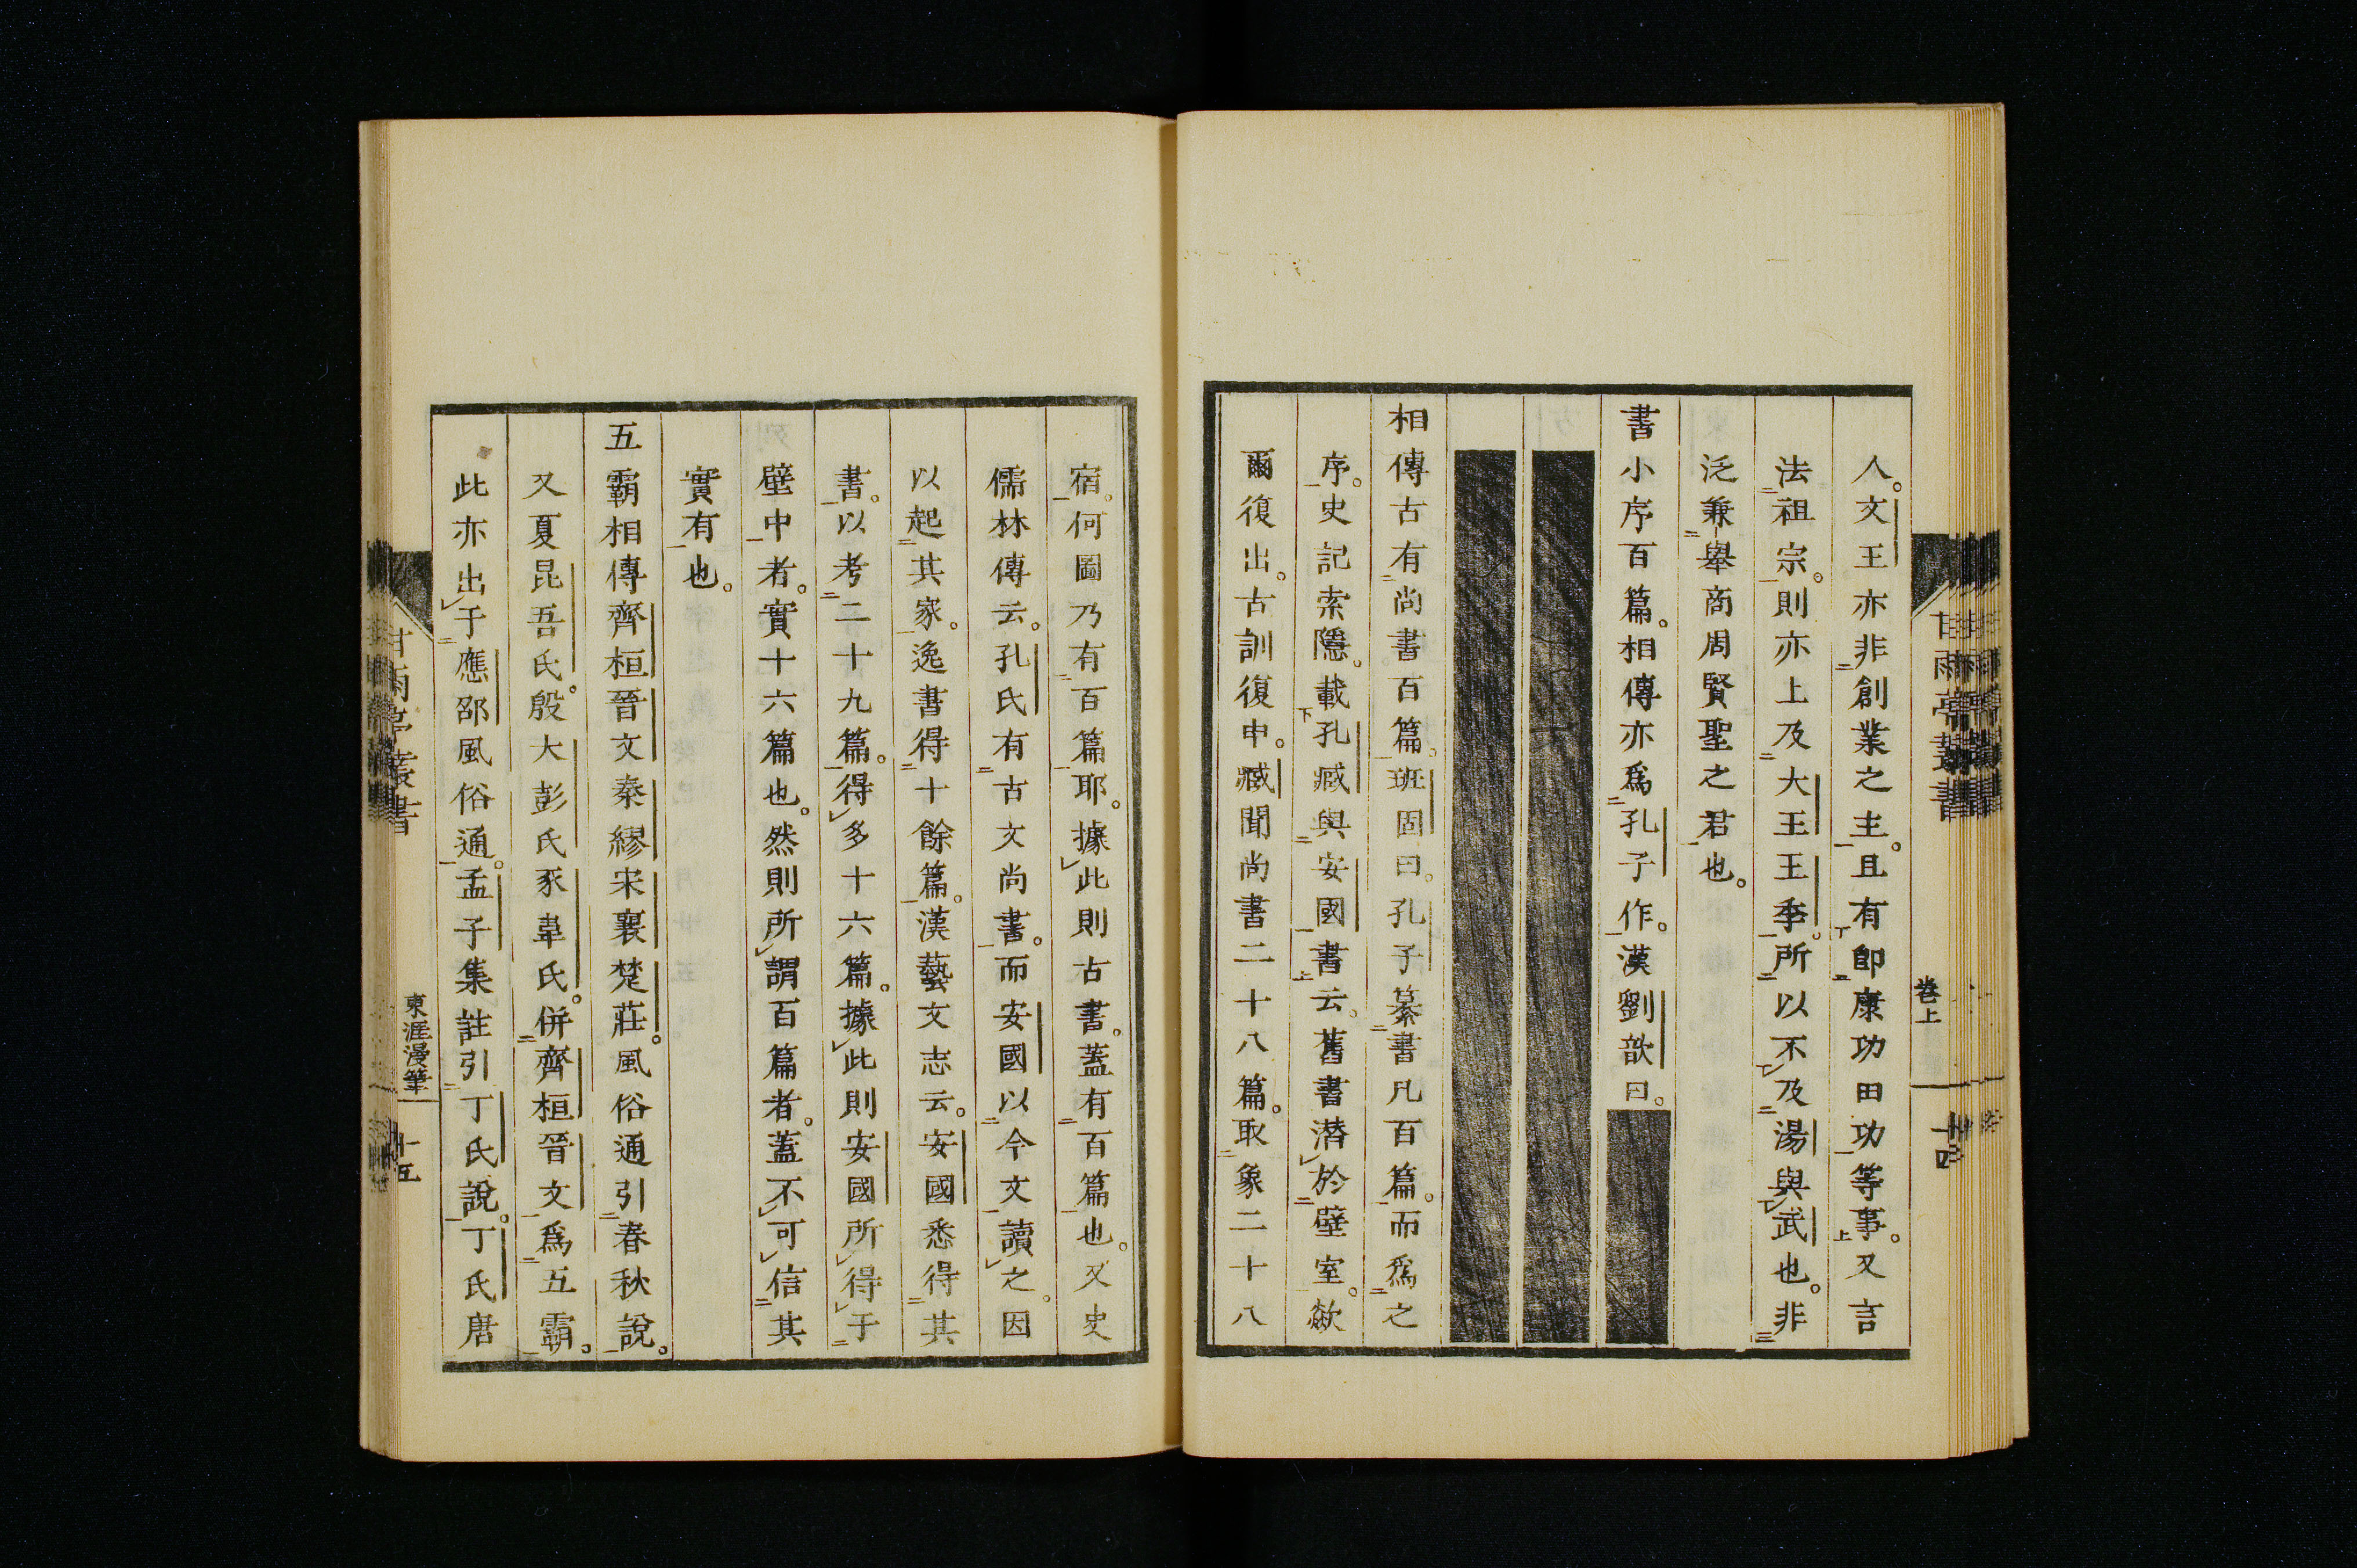 人。文王亦非創業之主。且有卽康功田功等事。又言
法祖宗。則亦上及大王王季。所以不及湯與武也。非
泛兼舉商周賢聖之君也。
書小序百篇。相傳亦爲孔子作。漢劉歆曰。
相傳古有尚書百篇。班固曰。孔子纂書凡百篇。而爲之
序。史記索隱。載孔臧與安國書云。舊書潛於壁室。歘
爾復出。古訓復申。臧聞尚書二十八篇。取象二十八
宿。何圖乃有百篇耶。據此則古書。蓋有百篇也。又史
儒林傳云。孔氏有古文尚書。而安國以今文讀之。因
以起其家。逸書得十餘篇。漢藝文志云。安國悉得其
書。以考二十九篇。得多十六篇。據此則安國所得于
壁中者。實十六篇也。然則所謂百篇者。蓋不可信其
實有也。
五霸相傳齊桓晉文秦繆宋襄楚莊。風俗通引春秋說。
又夏昆吾氏。殷大彭氏豕韋氏。併齊桓晉文爲五霸。
此亦出于應邵風俗通。孟子集註引丁氏說。丁氏唐
甘雨亭叢書
卷上
十四
甘雨亭叢書
東涯漫筆
十五